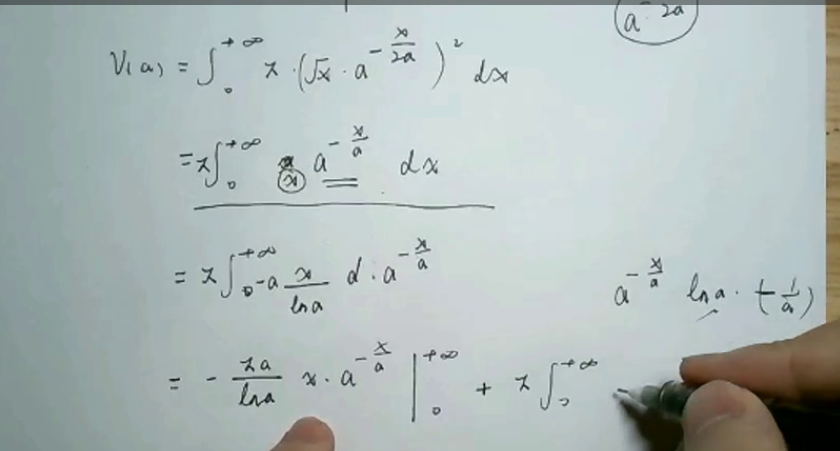 a^{-\frac{x}{2a}}
V(a) = ∫_0^{+∞} π·(√x · a^{-\frac{x}{2a}})^2 dx
= π∫_0^{+∞} x a^{-\frac{x}{a}} dx
= π∫_0^{+∞} -a \frac{x}{lna} d·a^{-\frac{x}{a}}
a^{-\frac{x}{a}} lna·(-\frac{1}{a})
= -\frac{πa}{lna} x·a^{-\frac{x}{a}} |_0^{+∞} + π∫_0^{+∞}